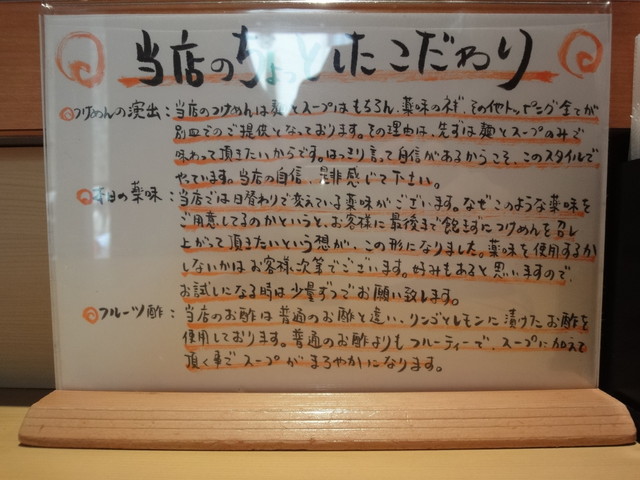 当店のちょっとしたこだわり
つけめんの演出：当店のつけめんは麺とスープはもちろん、薬味のネギ、その他トッピング全てが
別皿でのご提供となっております。その理由は、先ずは麺とスープのみで
味わって頂きたいからです。はっきり言って自信があるからこそ、このスタイルで
やています。当店の自信、是非感じて下さい。
本日の薬味：当店では日替わりで変えている薬味がございます。なぜこのような薬味を
ご用意してるのかというと、お客様に最後まで飽きずにつけめんを召し
上がって頂きたいという想が、この形になりました。薬味を使用するか
しないかはお客様次第でございます。好みもあると思いますので、
お試しになる時は少量ずつでお願い致します。
フルーツ酢：当店のお酢は普通のお酢と違い、リンゴとレモンに漬けたお酢を
使用しております。普通のお酢よりもフルーティーで、スープに加えて
頂く事でスープがまろやかになります。